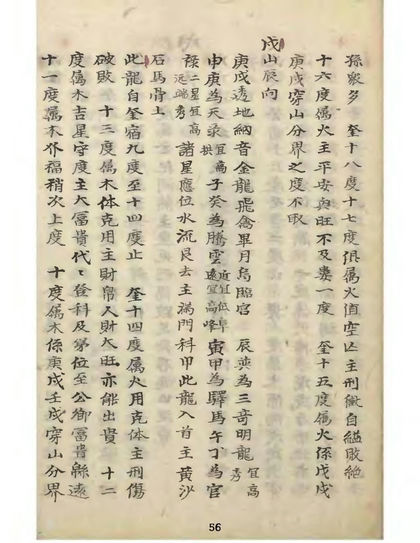 孫眾多　奎十八度十七度俱属火值空亡主刑徽自縊敗絶
十六度属火主平安與旺不及婁一度　奎十五度属火係戊戌
庚戌穿山分界之度不取
戌山辰向
庚戌透地納音金龍飛禽畢月烏臨宮　辰巽為三竒明龍宜高秀
申庚為天录宜高拱子癸為騰雲近宜低阜遠宜高峰寅甲為驛馬午丁為官
祿二星宜高遠端秀諸星應位水流艮去主滿門科甲此龍入首主黄沙
石馬骨土
此龍自奎宿九度至十四度止　奎十四度属火用克体主刑傷
破敗　十三度属木体克用主財帛人財大旺亦能出貴　十二
度属木吉星守度主大冨貴代〻登科及第位至公卿冨貴綿遠
十一度属木外福稍次上度　十度属木係庚戌壬戌穿山分界
56